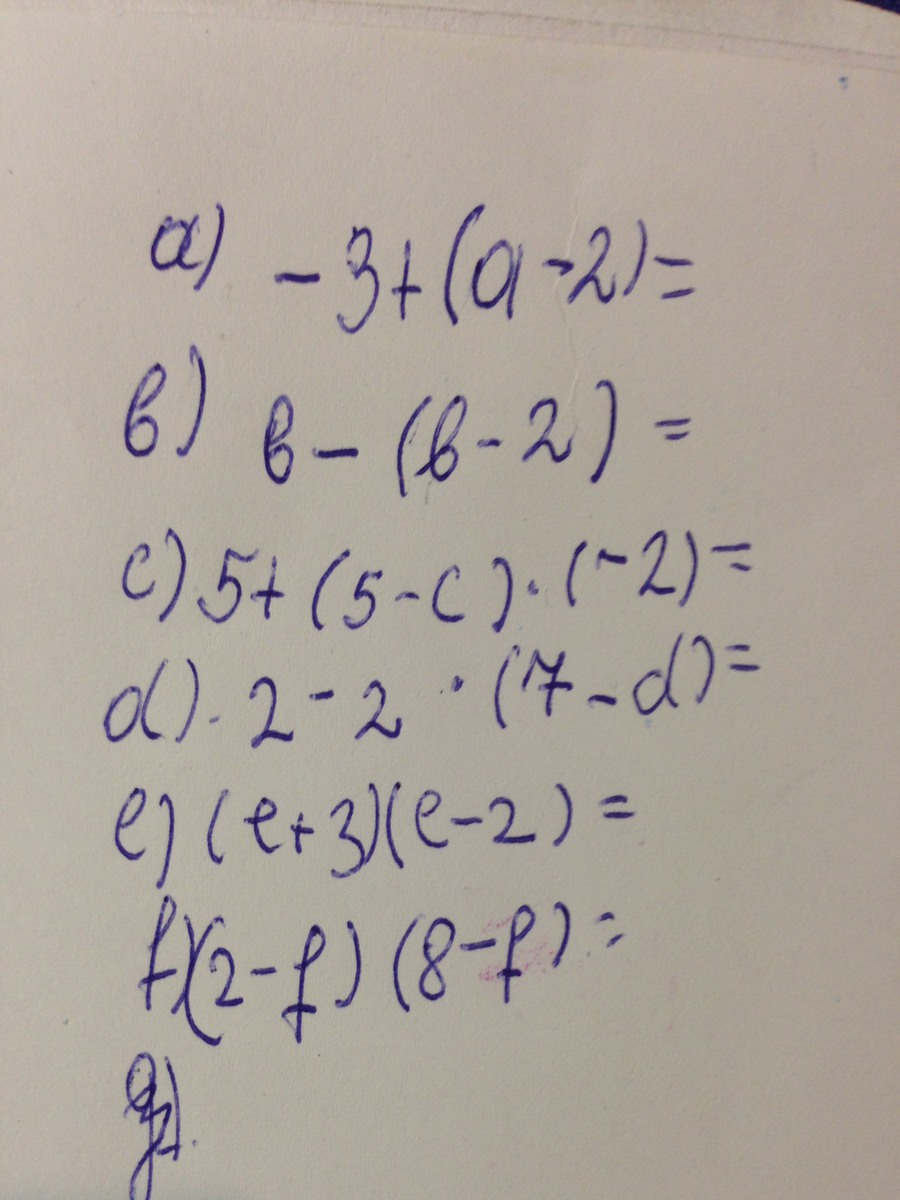 a) -3+(a-2)=
b) b-(b-2)=
c) 5+(5-c)·(-2)=
d) 2-2·(7-d)=
e) (e+3)(e-2)=
f) (2-f)(8-f)=